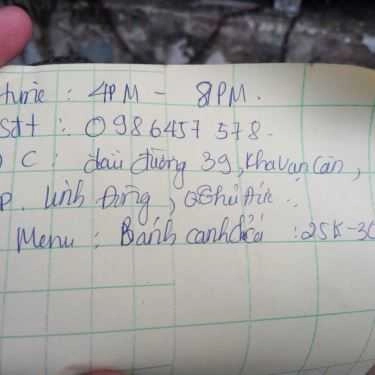 time : 4PM - 8PM.
sđt : 0986457578.
Đ C : đầu đường 39, Kha Vạn Cân,
P. Linh Đông, Q Thủ Đức.
Menu : Bánh canh : 25K-30